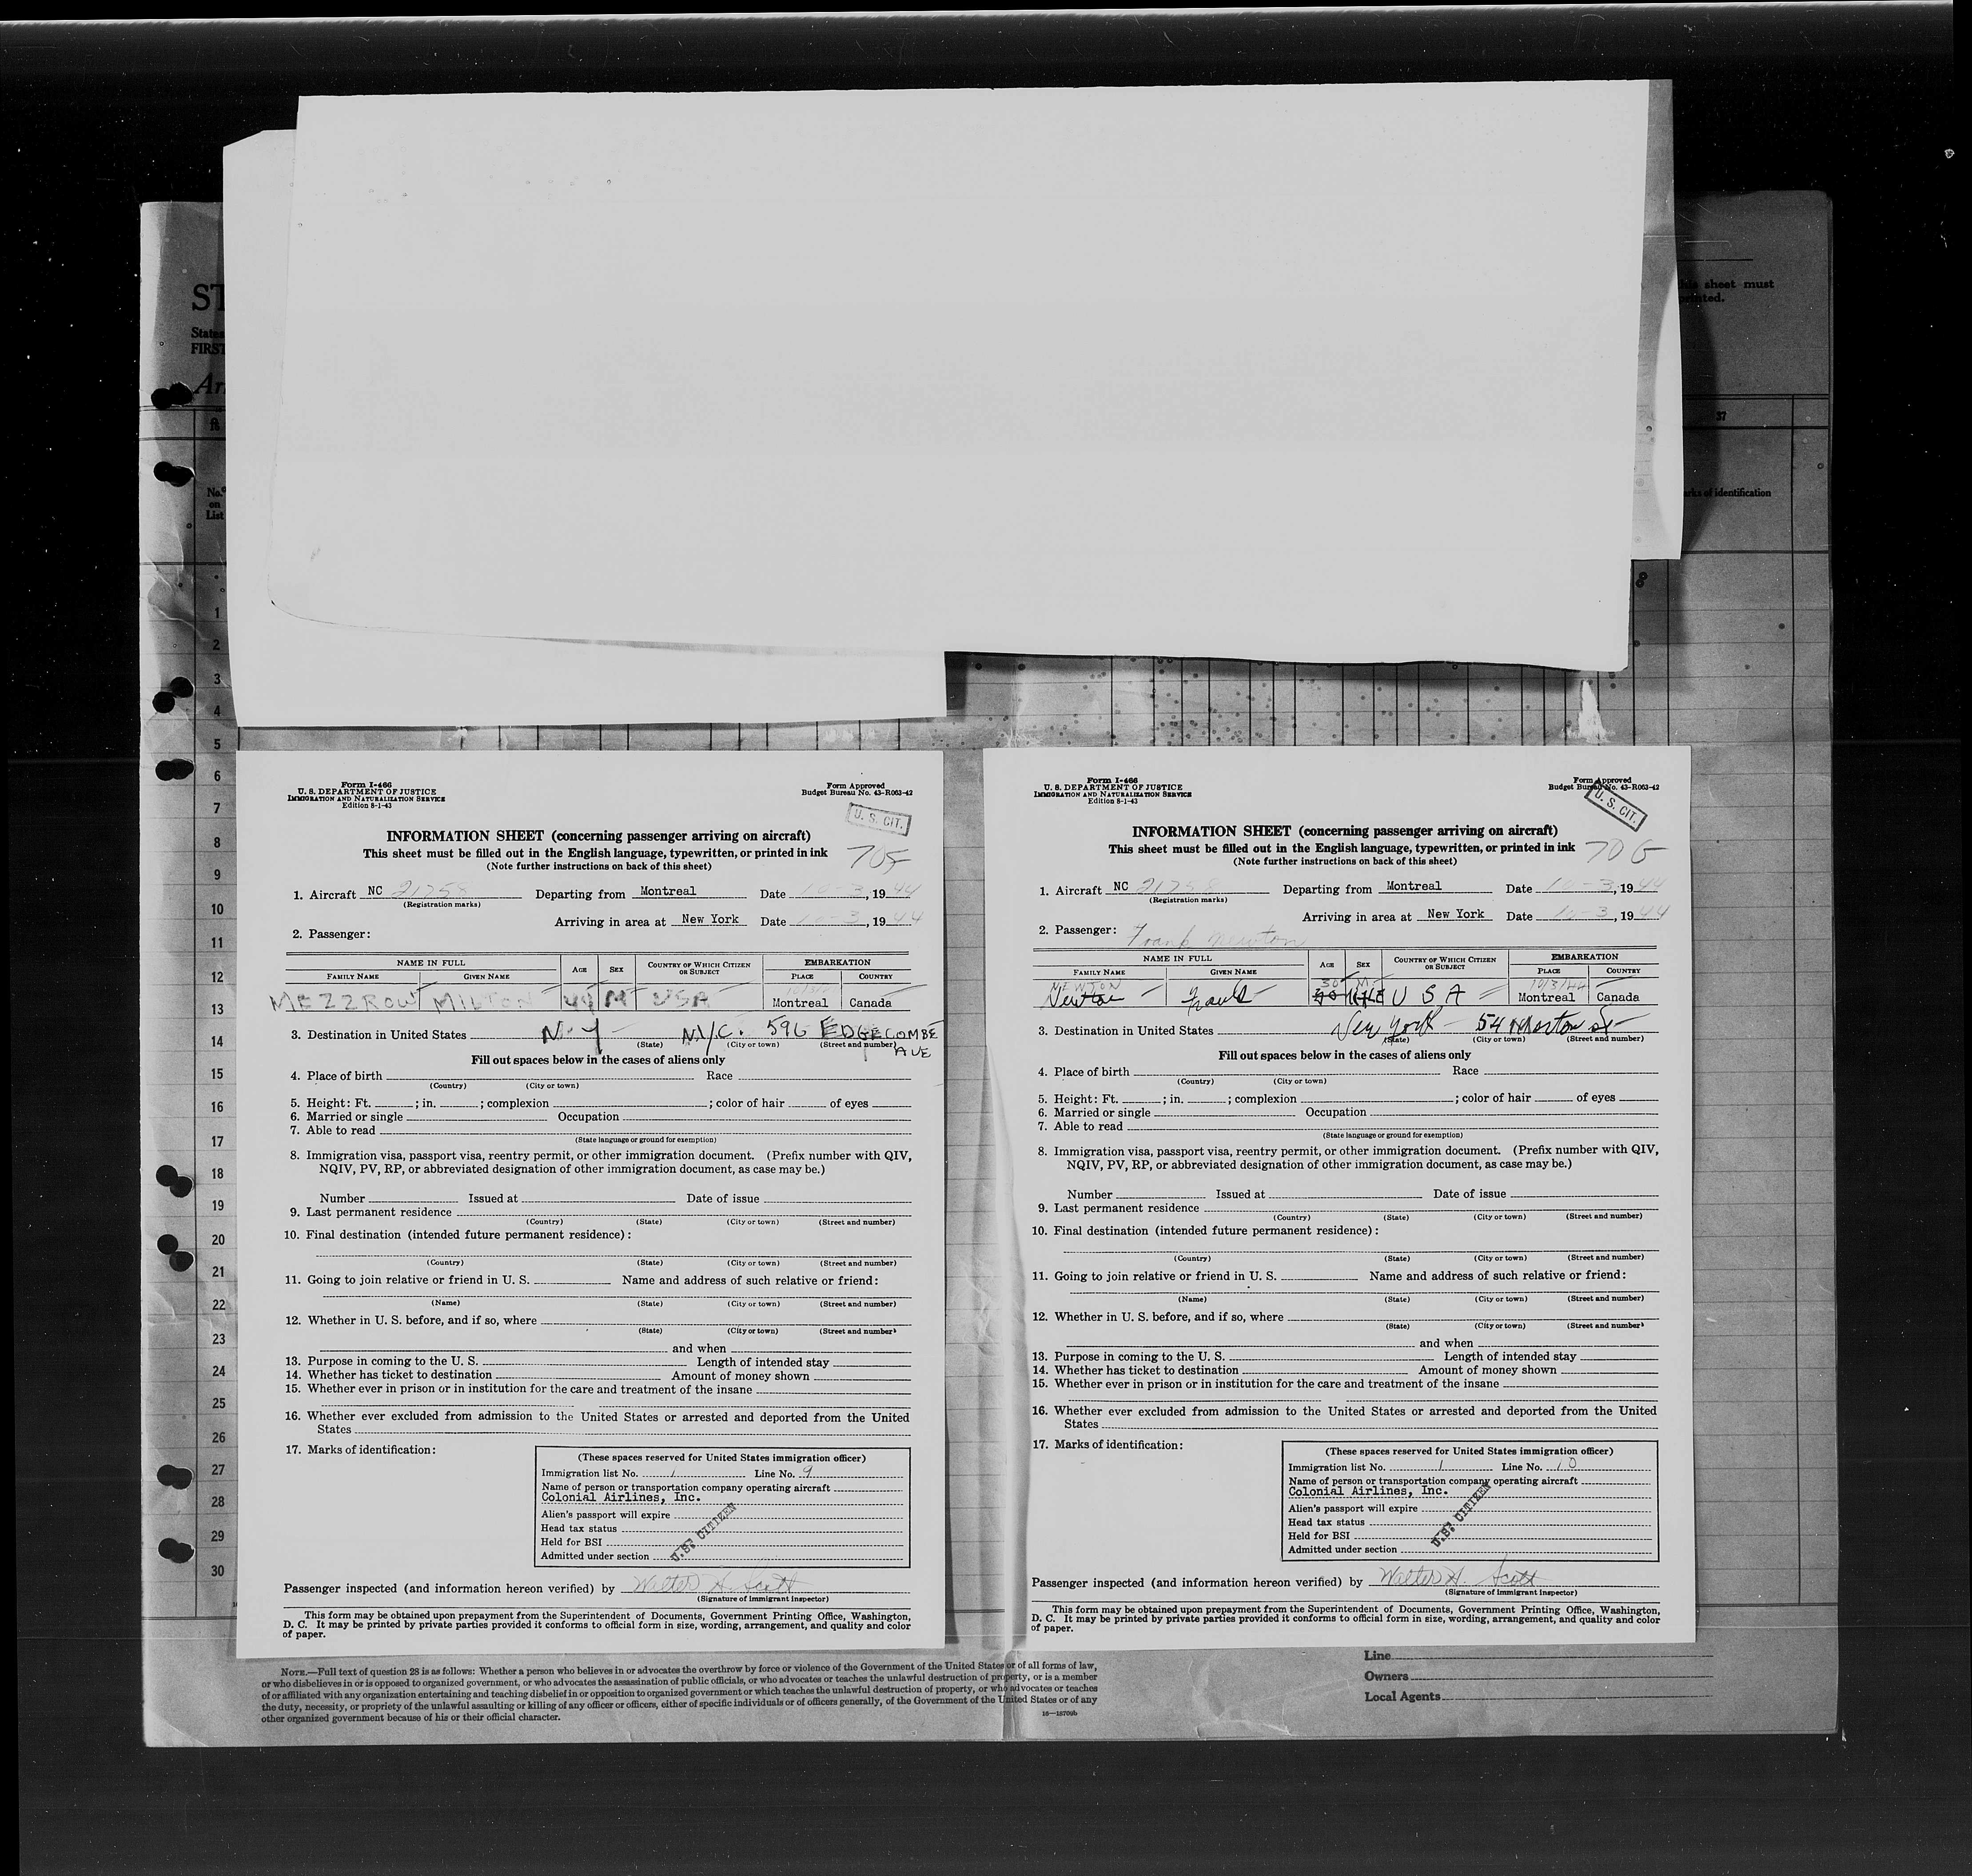 ST
States
FIRST
Arr
sheet must
printed.
37
No.
on
List
marks of identification
8
1
2
3
4
5
6
7
8
9
10
11
12
13
14
15
16
17
18
19
20
21
22
23
24
25
26
27
28
29
30
Form I-466
U. S. DEPARTMENT OF JUSTICE
IMMIGRATION AND NATURALIZATION SERVICE
Edition 8-1-43
Form Approved
Budget Bureau No. 43-R063-42
U. S. CIT.
INFORMATION SHEET (concerning passenger arriving on aircraft)
This sheet must be filled out in the English language, typewritten, or printed in ink
(Note further instructions on back of this sheet)
705
1. Aircraft NC 21758 Departing from Montreal Date 10-3, 1944
(Registration marks)
Arriving in area at New York Date 10-3, 1944
2. Passenger:
NAME IN FULL AGE SEX COUNTRY OF WHICH CITIZEN OR SUBJECT EMBARKATION
FAMILY NAME GIVEN NAME PLACE COUNTRY
MEZZROW MILTON 44 M USA Montreal Canada
3. Destination in United States N.Y N.Y.C. 596 EDGECOMBE AVE
(State) (City or town) (Street and number)
Fill out spaces below in the cases of aliens only
4. Place of birth Race
(Country) (City or town)
5. Height: Ft. ; in. ; complexion ; color of hair of eyes
6. Married or single Occupation
7. Able to read
(State language or ground for exemption)
8. Immigration visa, passport visa, reentry permit, or other immigration document. (Prefix number with QIV,
NQIV, PV, RP, or abbreviated designation of other immigration document, as case may be.)
Number Issued at Date of issue
9. Last permanent residence
(Country) (State) (City or town) (Street and number)
10. Final destination (intended future permanent residence):
(Country) (State) (City or town) (Street and number)
11. Going to join relative or friend in U. S. Name and address of such relative or friend:
(Name) (State) (City or town) (Street and number)
12. Whether in U. S. before, and if so, where
(State) (City or town) (Street and number)
and when
13. Purpose in coming to the U. S. Length of intended stay
14. Whether has ticket to destination Amount of money shown
15. Whether ever in prison or in institution for the care and treatment of the insane
16. Whether ever excluded from admission to the United States or arrested and deported from the United
States
17. Marks of identification:
(These spaces reserved for United States immigration officer)
Immigration list No. 1 Line No. 9
Name of person or transportation company operating aircraft
Colonial Airlines, Inc.
Alien's passport will expire
Head tax status
Held for BSI
Admitted under section
U.S. CITIZEN
Passenger inspected (and information hereon verified) by Walter H. Scott
(Signature of immigrant inspector)
This form may be obtained upon prepayment from the Superintendent of Documents, Government Printing Office, Washington,
D. C. It may be printed by private parties provided it conforms to official form in size, wording, arrangement, and quality and color
of paper.
Form I-466
U. S. DEPARTMENT OF JUSTICE
IMMIGRATION AND NATURALIZATION SERVICE
Edition 8-1-43
Form Approved
Budget Bureau No. 43-R063-42
U. S. CIT.
INFORMATION SHEET (concerning passenger arriving on aircraft)
This sheet must be filled out in the English language, typewritten, or printed in ink
(Note further instructions on back of this sheet)
706
1. Aircraft NC 21758 Departing from Montreal Date 10-3, 1944
(Registration marks)
Arriving in area at New York Date 10-3, 1944
2. Passenger: Frank Newton
NAME IN FULL AGE SEX COUNTRY OF WHICH CITIZEN OR SUBJECT EMBARKATION
FAMILY NAME GIVEN NAME PLACE COUNTRY
NEWTON 30 M 10/3/44
Newton Frank U S A Montreal Canada
3. Destination in United States New York 54 Morton St
(State) (City or town) (Street and number)
Fill out spaces below in the cases of aliens only
4. Place of birth Race
(Country) (City or town)
5. Height: Ft. ; in. ; complexion ; color of hair of eyes
6. Married or single Occupation
7. Able to read
(State language or ground for exemption)
8. Immigration visa, passport visa, reentry permit, or other immigration document. (Prefix number with QIV,
NQIV, PV, RP, or abbreviated designation of other immigration document, as case may be.)
Number Issued at Date of issue
9. Last permanent residence
(Country) (State) (City or town) (Street and number)
10. Final destination (intended future permanent residence):
(Country) (State) (City or town) (Street and number)
11. Going to join relative or friend in U. S. Name and address of such relative or friend:
(Name) (State) (City or town) (Street and number)
12. Whether in U. S. before, and if so, where
(State) (City or town) (Street and number)
and when
13. Purpose in coming to the U. S. Length of intended stay
14. Whether has ticket to destination Amount of money shown
15. Whether ever in prison or in institution for the care and treatment of the insane
16. Whether ever excluded from admission to the United States or arrested and deported from the United
States
17. Marks of identification:
(These spaces reserved for United States immigration officer)
Immigration list No. 1 Line No. 10
Name of person or transportation company operating aircraft
Colonial Airlines, Inc.
Alien's passport will expire
Head tax status
Held for BSI
Admitted under section
U.S. CITIZEN
Passenger inspected (and information hereon verified) by Walter H. Scott
(Signature of immigrant inspector)
This form may be obtained upon prepayment from the Superintendent of Documents, Government Printing Office, Washington,
D. C. It may be printed by private parties provided it conforms to official form in size, wording, arrangement, and quality and color
of paper.
NOTE.—Full text of question 28 is as follows: Whether a person who believes in or advocates the overthrow by force or violence of the Government of the United States or of all forms of law,
or who disbelieves in or is opposed to organized government, or who advocates the assassination of public officials, or who advocates or teaches the unlawful destruction of property, or is a member
of or affiliated with any organization entertaining and teaching disbelief in or opposition to organized government or which teaches the unlawful destruction of property, or who advocates or teaches
the duty, necessity, or propriety of the unlawful assaulting or killing of any officer or officers, either of specific individuals or of officers generally, of the Government of the United States or of any
other organized government because of his or their official character.
16—18709b
Line
Owners
Local Agents